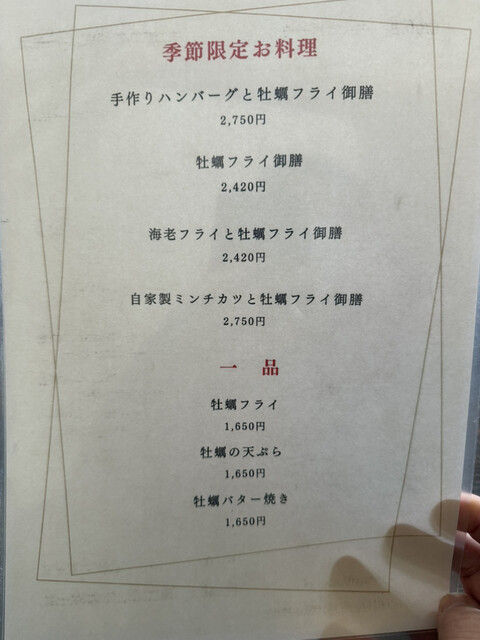 季節限定お料理
手作りハンバーグと牡蠣フライ御膳
2,750円
牡蠣フライ御膳
2,420円
海老フライと牡蠣フライ御膳
2,420円
自家製ミンチカツと牡蠣フライ御膳
2,750円
一 品
牡蠣フライ
1,650円
牡蠣の天ぷら
1,650円
牡蠣バター焼き
1,650円